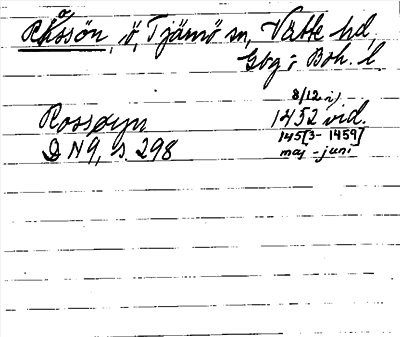 Råssön, ö, Tjärnö sn, Vätte hd,
Gbg o Boh. l
Rossøyn
8/12 i)
1452 vid.
D N 9, s. 298
145[3-1459]
maj-juni